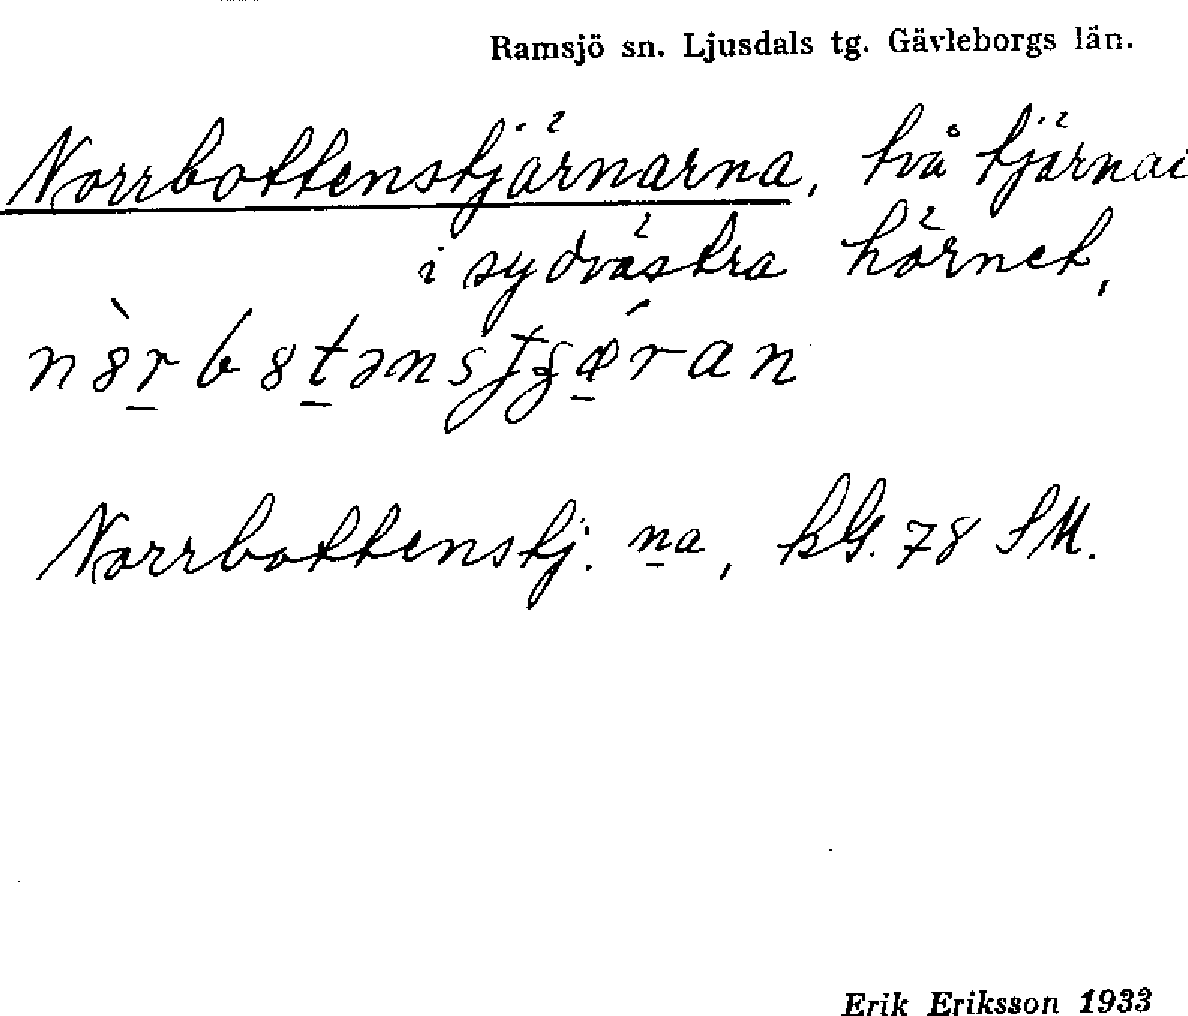 Ramsjö sn. Ljusdals tg. Gävleborgs län.
Norrbottenstjärnarna, två tjärnar
i sydvästra hörnet,
Norrbottenstj:na, kbl. 78 SM.
Erik Eriksson 1933